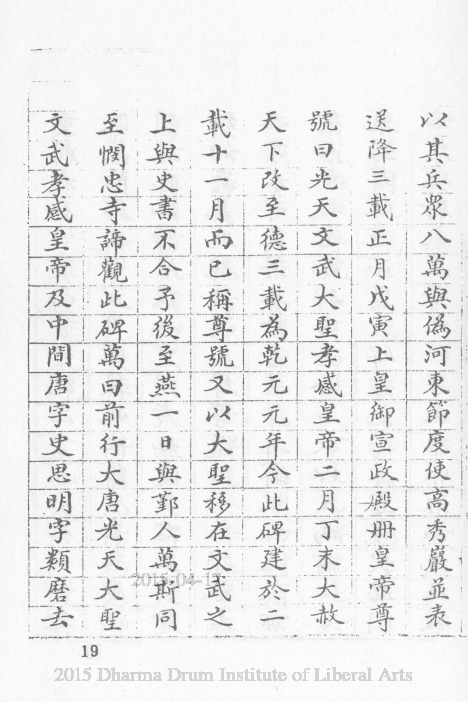 以其兵眾八萬與偽河東節度使高秀巖並表
送降三載正月戊寅上皇御宣政殿冊皇帝尊
號曰光天文武大聖孝感皇帝二月丁未大赦
天下改至德三載為乾元元年今此碑建於二
載十一月而已稱尊號又以大聖移在文武之
上與史書不合予後至燕一日與鄞人萬斯同
至憫忠寺諦觀此碑萬曰前行大唐光天大聖
文武孝感皇帝及中間唐字史思明字類磨去
2015-04-1
19
2015 Dharma Drum Institute of Liberal Arts